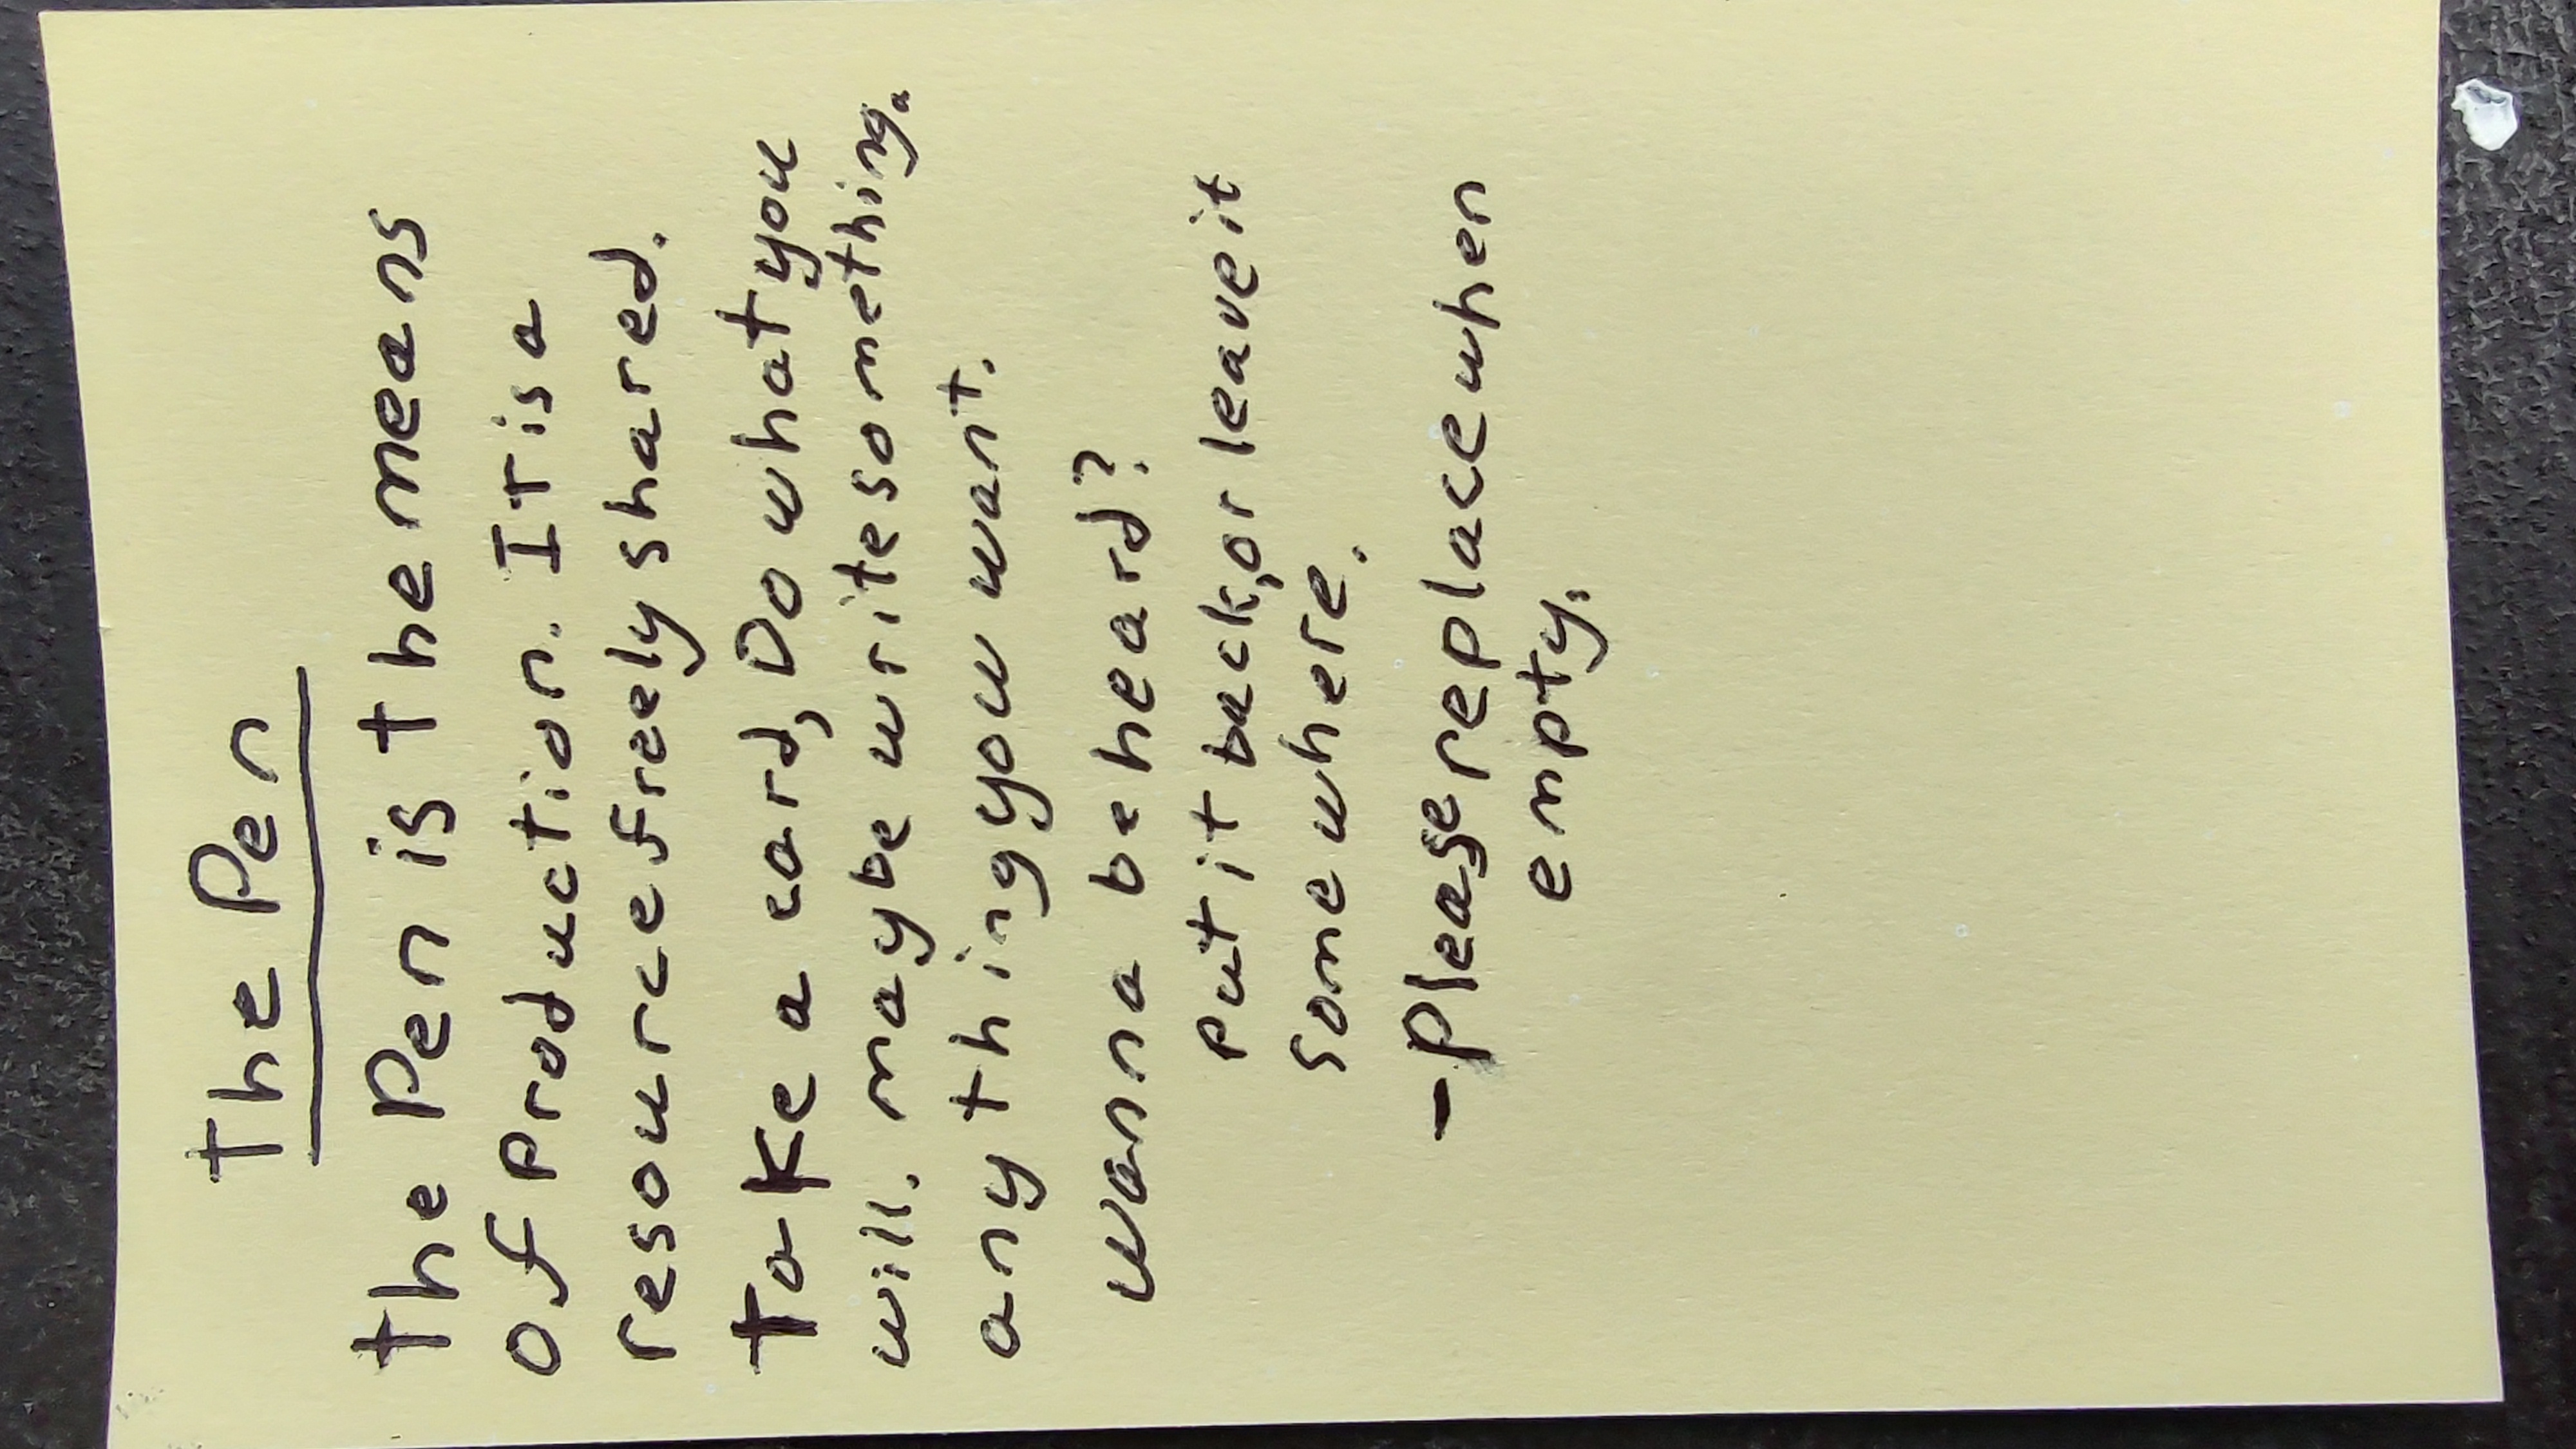 the Pen
the Pen is the means
of production. It is a
resource freely shared.
take a card, Do what you
will. maybe write something.
any thing you want.
wanna be heard?
put it back, or leave it
somewhere.
- please replace when
empty.